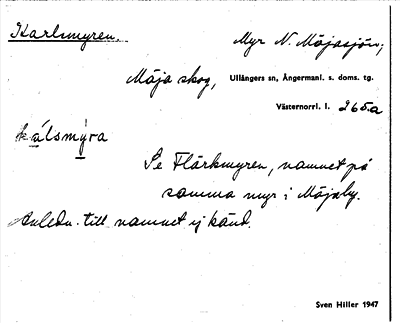 Karlsmyren.
Myr N. Möjasjön;
Möja skog, Ullångers sn, Ångermanl. s. doms. tg.
Västernorrl. l. 265a
kálsmýra
Se Flärkmyren, namnet på
samma myr i Möjaby.
Anledn. till namnet ej känd.
Sven Hiller 1947